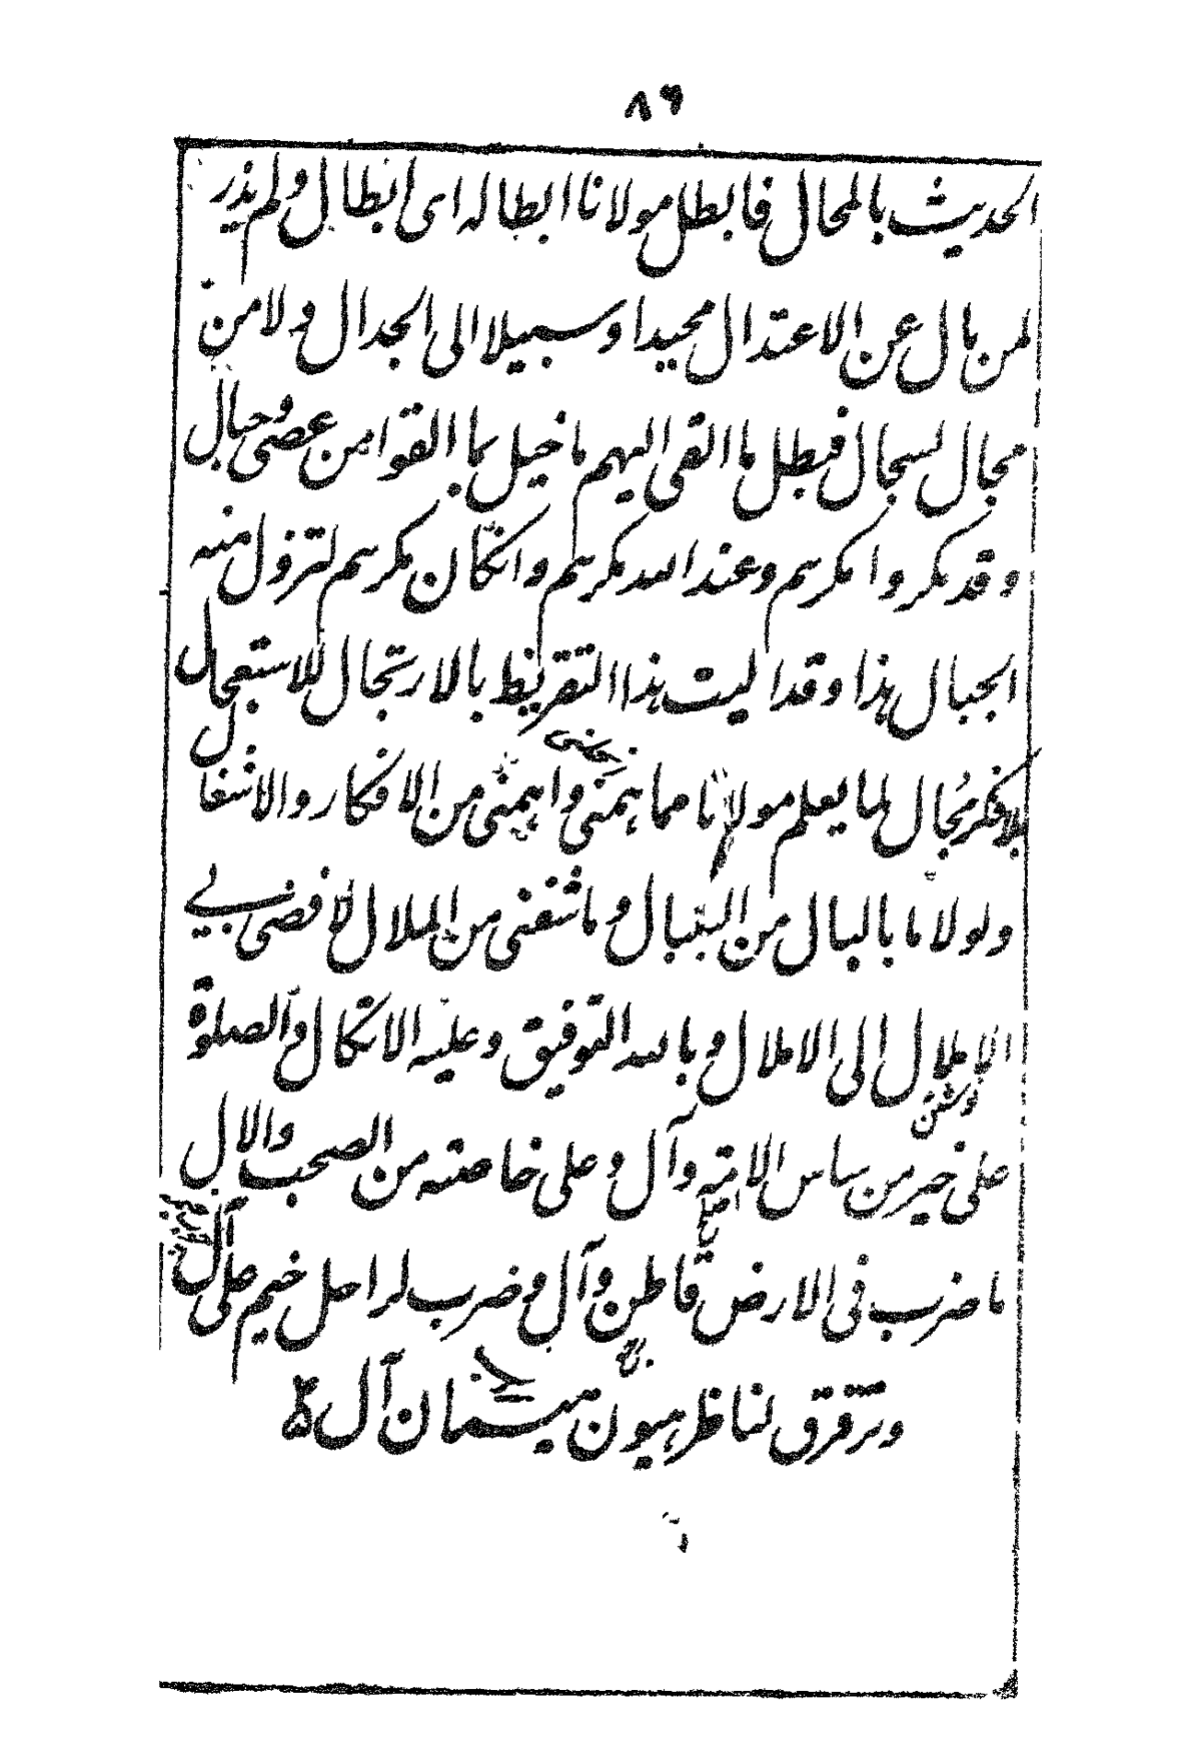 ٨٦
الحديث بالمحال فابطل مولانا ابطاله اى ابطال ولم يذر
لمن مال عن الاعتدال محيدا وسبيلا الى الجدال ولا من
مجال لسجال فبطل ما القى اليهم ماخيل بما القوا من عصى وحبال
وقد مكروا مكرهم وعند الله مكرهم وان كان مكرهم لتزول منه
الجبال هذا وقد اليت هذا التقريظ بالارتجال للاستعجال
بلا فكر مجال لما يعلم مولانا مما همنى واهمنى من الافكار والاشغال
ولولا ما بالبال من البلبال وما شغنى من الملال لافضى بى
الاملال الى الاملال وبالله التوفيق وعليه الاتكال والصلوة
على خير من ساس الامة وآل وعلى خاصته من الصحب والال
ما ضرب فى الارض قاطن وآل وضرب لراحل خيم على آل
وترقرق لناظر هيون ميتمان آل